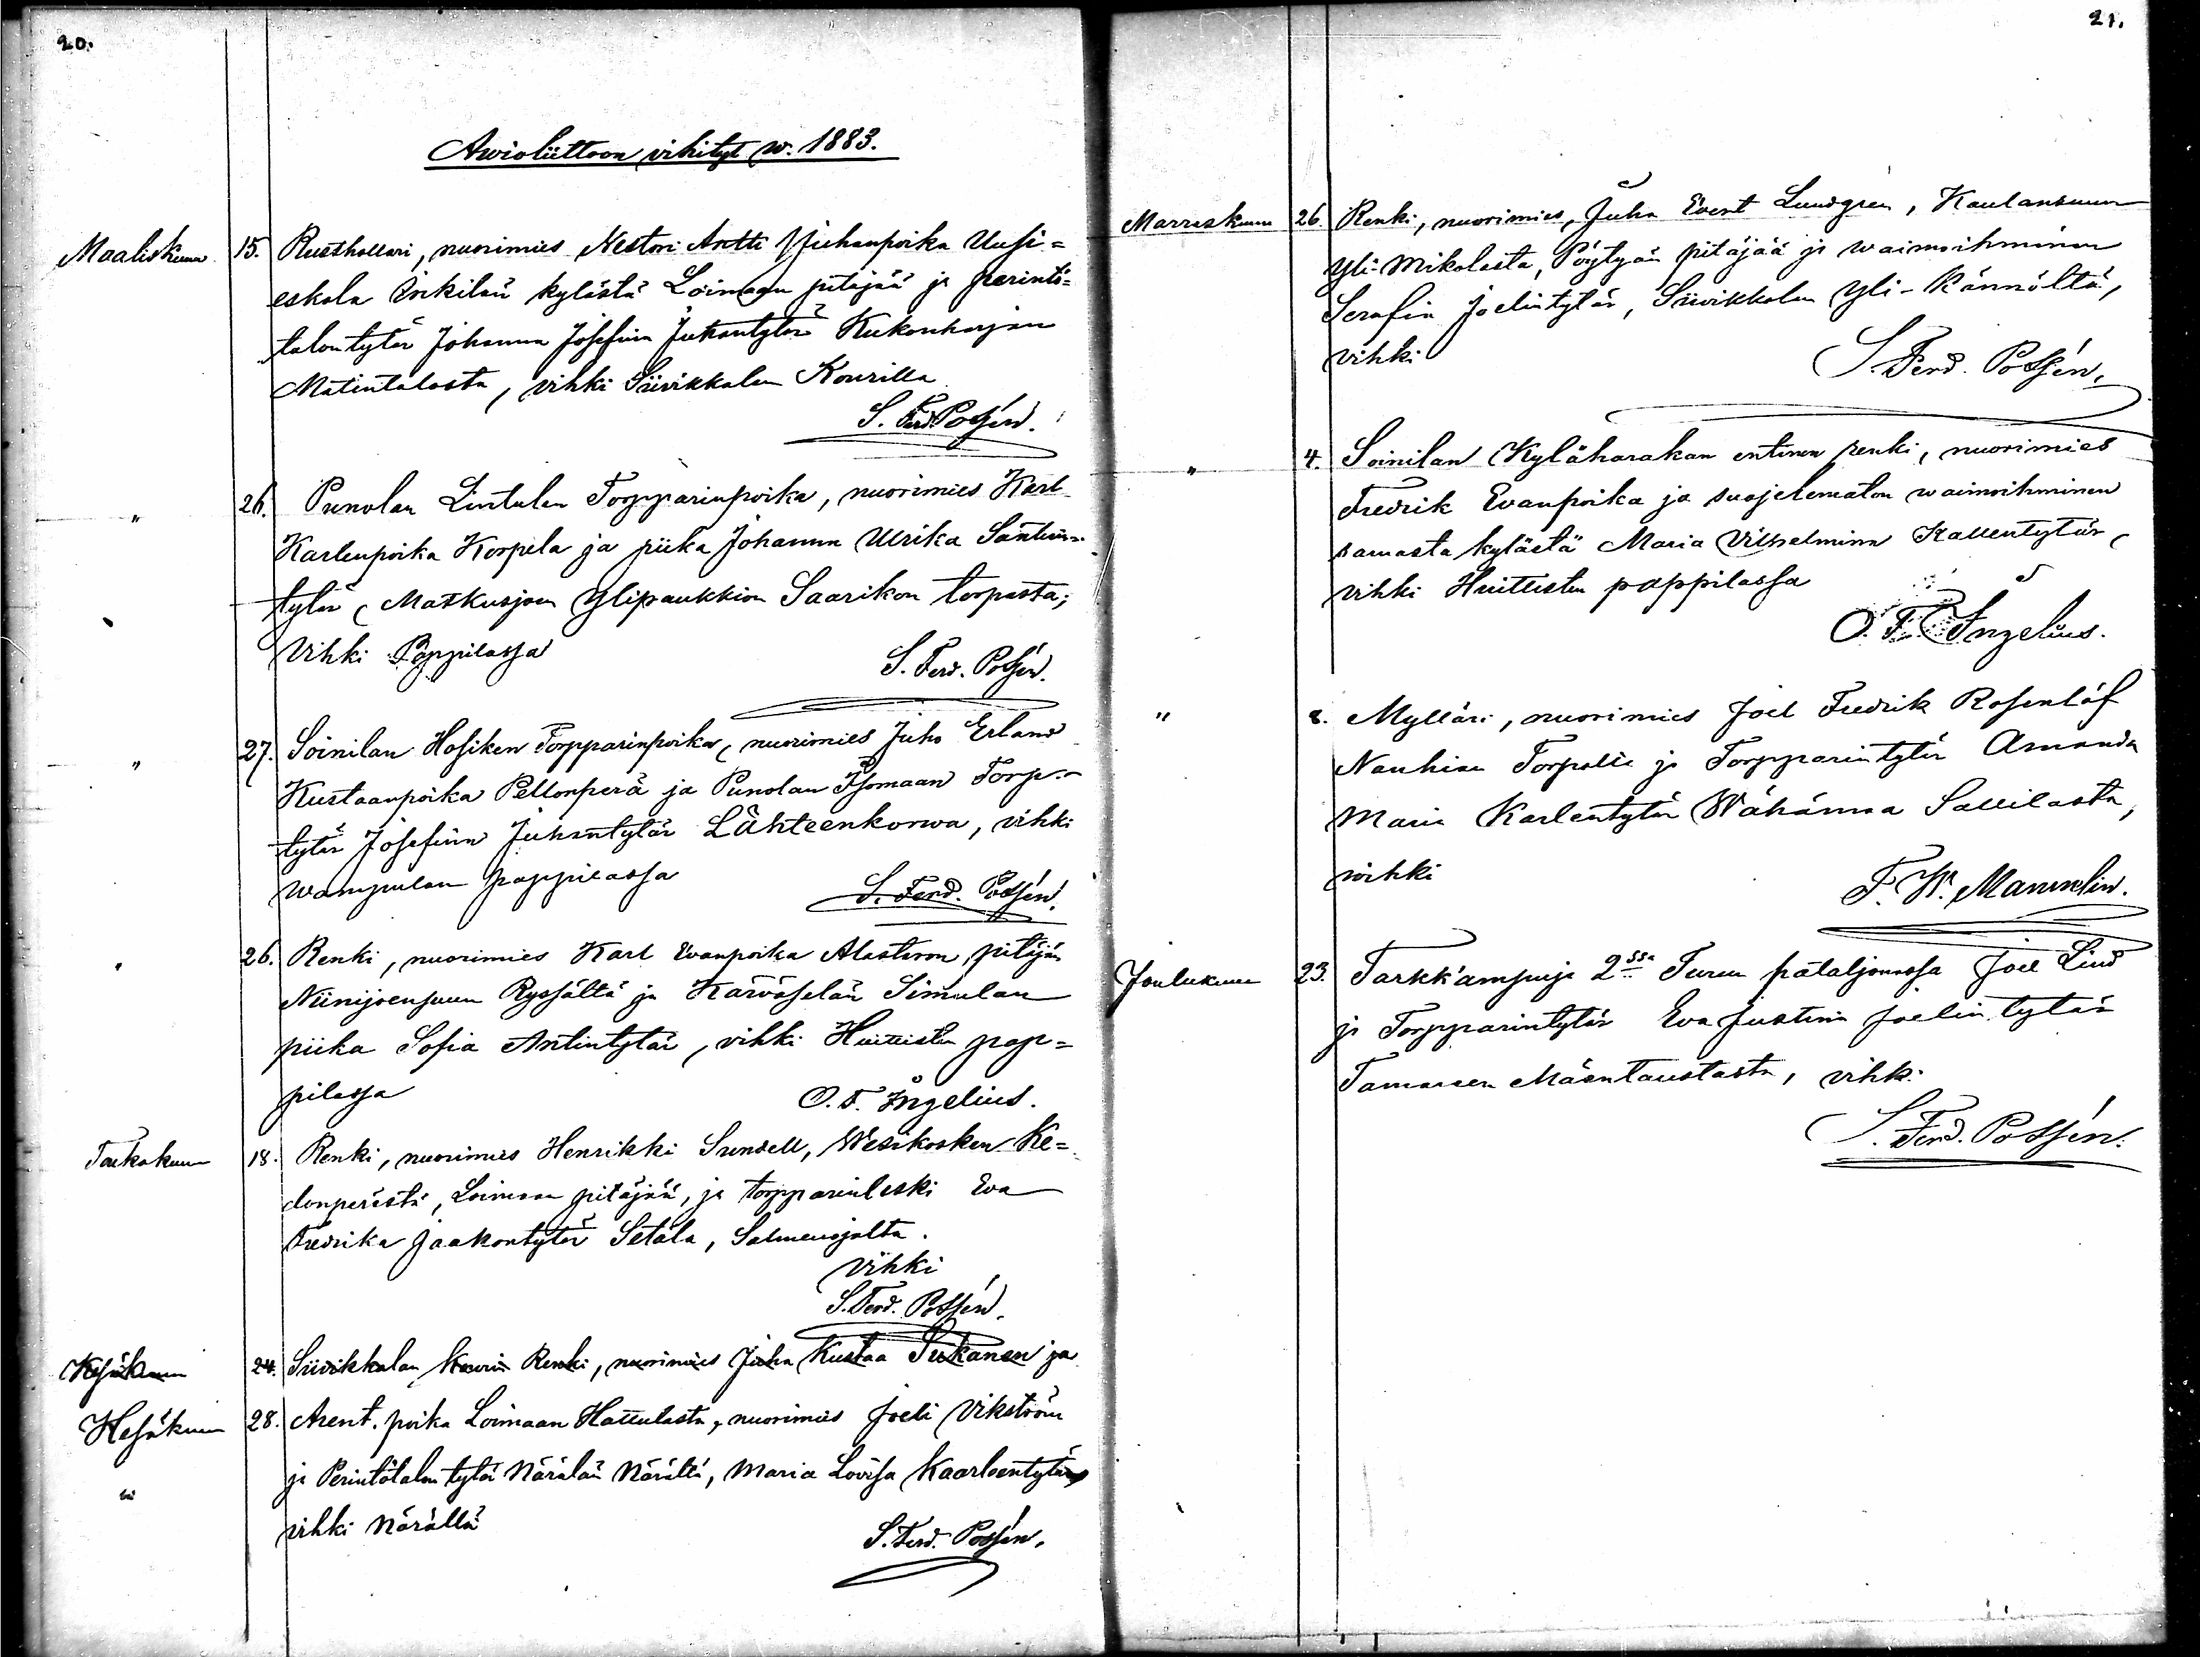 20.
Awioliittoon vihityt w. 1883.
Maaliskuun 15. Rusthollari, nuorimies Nestori Antti Juhanpoika Uusi=
eskola Onkilan kylästä Loimaan pitäjää ja perintö=
talontytär Johanna Josefiina Juhantytär Kukonharjan
Matintalosta, vihki Siivikkalan Kourilla
S. Ferd. Possén.
" 26. Punolan Lintulan Torpparinpoika, nuorimies Karl
Karlenpoika Korpela ja piika Johanna Ulrika Santerin=
tytär, Matkusjoen Ylipaukkion Saarikon torpasta;
Vihki Pappilassa
S. Ferd. Possén.
" 27. Soinilan Hosiken Torpparinpoika, nuorimies Juho Erland
Kustaanpoika Pellonperä ja Punolan Isomaan Torp.
tytär Josefiina Juhantytär Lähteenkorwa, vihki
Wampulan pappilassa
S. Ferd. Possén.
" 26. Renki, nuorimies Karl Evanpoika Alastaron pitäjän
Niinijoensuun Ryssältä ja Karwaselän Simulan
piika Sofia Antintytär, vihki Huittisten pap=
pilassa
O. F. Ingelius.
Toukokuun 18. Renki, nuorimies Henrikki Sundell, Wesikosken Ke=
donperästä, Loimaan pitäjää, ja torpparinleski Eva
Fredrika Jaakontytär Setälä, Salmenojalta.
vihki
S. Ferd. Possén.
Kesäkuun 24. Siivikkalan Kourin Renki, nuorimies Juha Kustaa Tukanen ja
Kesäkuun 28. Arent. poika Loimaan Hattulasta, nuorimies Joeli Vikström
" ja Perintötalon tytär Närälän Närältä, Maria Lovisa Kaarlentytär
vihki Närällä
S. Ferd. Possén.
21.
Marraskuun 26. Renki, nuorimies, Juha Evert Lundgren, Kaulansuun
Yli-Mikolasta, Pöytyän pitäjää ja waimoihminen
Serafia Joelintytär, Siivikkalan Yli-Kännöltä,
vihki
S. Ferd. Possén.
" 4. Soinilan Kyläharakan entinen renki, nuorimies
Fredrik Evanpoika ja suojelematon waimoihminen
samasta kylästä Maria Vilhelmina Kallentytär,
vihki Huittisten pappilassa
O. F. Ingelius.
" 2. Mylläri, nuorimies Joel Fredrik Rosenlöf
Nanhian Torpalla ja Torpparintytär Amanda
Maria Karlentytär Wähämaa Sallilasta,
wihki
F. W. Mannelin.
Joulukuun 23. Tarkk'ampuja 2ssa Turun pataljonassa Joel Lind
ja Torpparintytär Eva Justina Joelin tytär
Tamaren Mäentaustasta, vihki
S. Ferd. Possén.